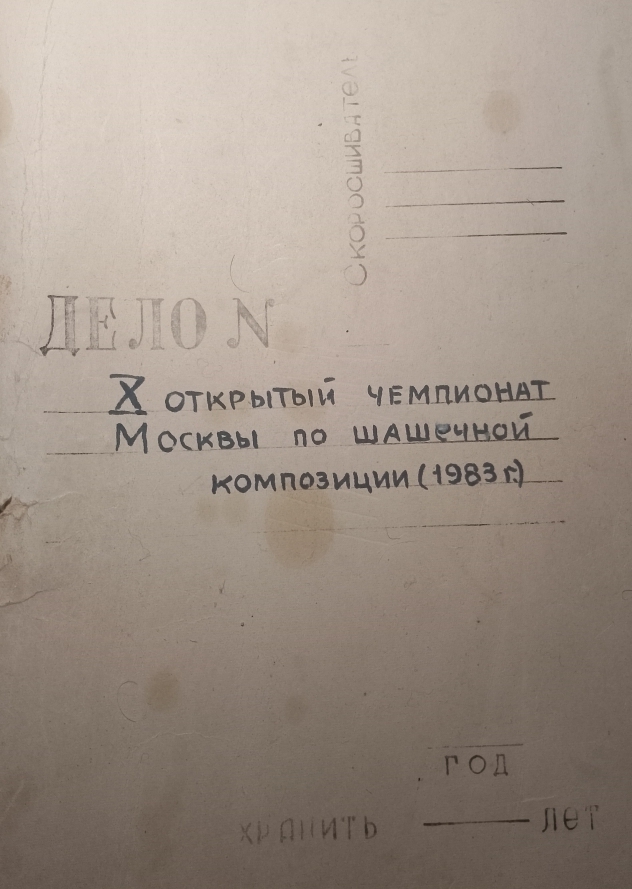 Скоросшиватель
ДЕЛО N
X ОТКРЫТЫЙ ЧЕМПИОНАТ
МОСКВЫ ПО ШАШЕЧНОЙ
КОМПОЗИЦИИ (1983 г.)
ГОД
ХРАНИТЬ ЛЕТ